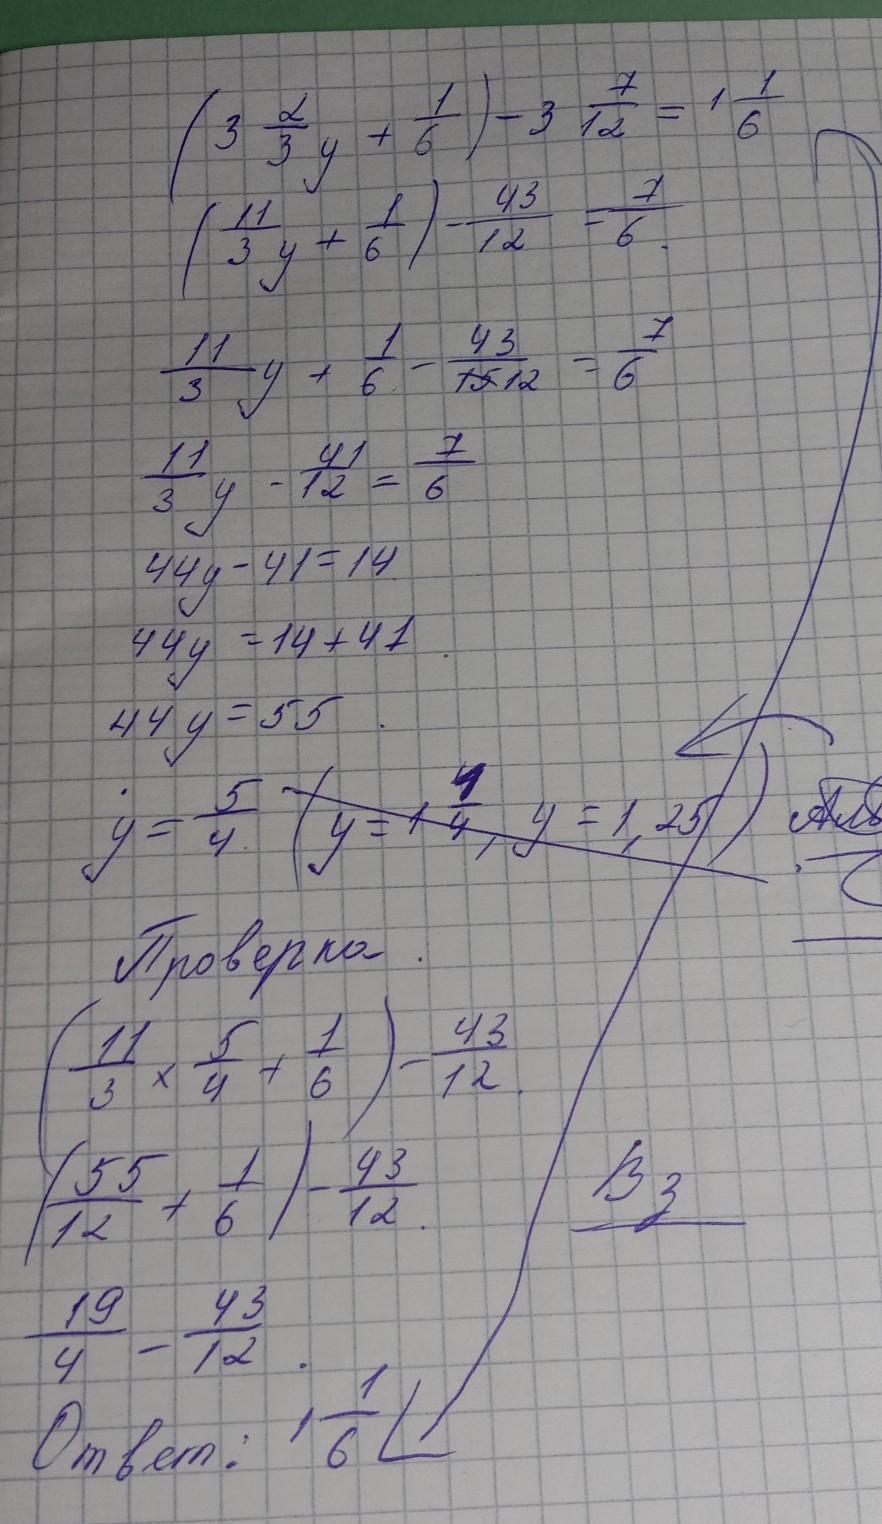 (3 2/3 y + 1/6) - 3 7/12 = 1 1/6
(11/3 y + 1/6) - 43/12 = 7/6.
11/3 y + 1/6 - 43/12 = 7/6
11/3 y - 41/12 = 7/6
44y - 41 = 14
44y = 14 + 41
44y = 55.
y = 5/4. (y = 1 1/4, y = 1,25)
Проверка.
(11/3 x 5/4 + 1/6) - 43/12.
(55/12 + 1/6) - 43/12.
В3
19/4 - 43/12.
Ответ: 1 1/6